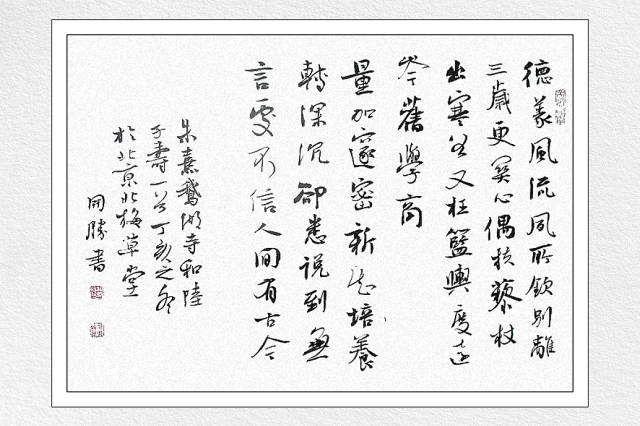 德義風流夙所欽別離
三歲更關心偶扶藜杖
出寒谷又枉籃輿度遠
岑舊學商
量加邃密新知培養
轉深沉卻愁說到無
言處不信人間有古今
朱熹鵝湖寺和陸
子壽一首丁亥之冬
於北京北梅草堂
開勝書